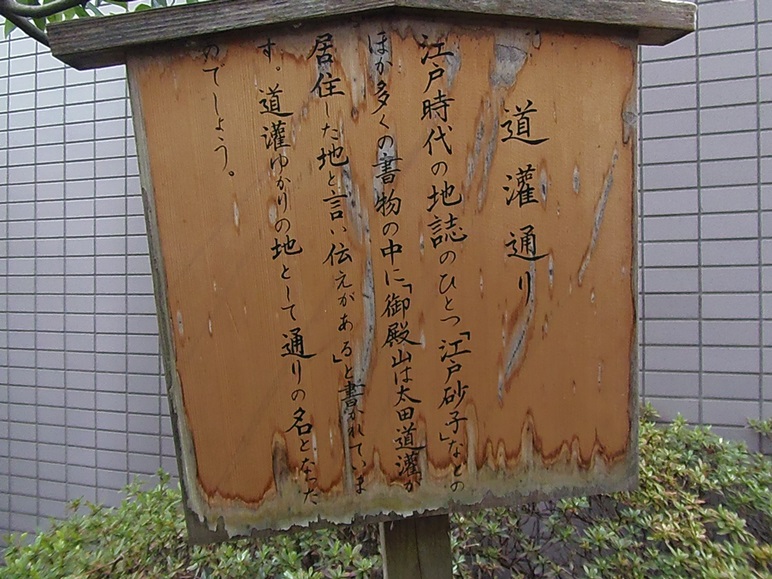 道灌通り
江戸時代の地誌のひとつ「江戸砂子」などの
ほか多くの書物の中に「御殿山は太田道灌が
居住した地と言い伝えがある」と書かれていま
す。道灌ゆかりの地として通りの名となった
のでしょう。